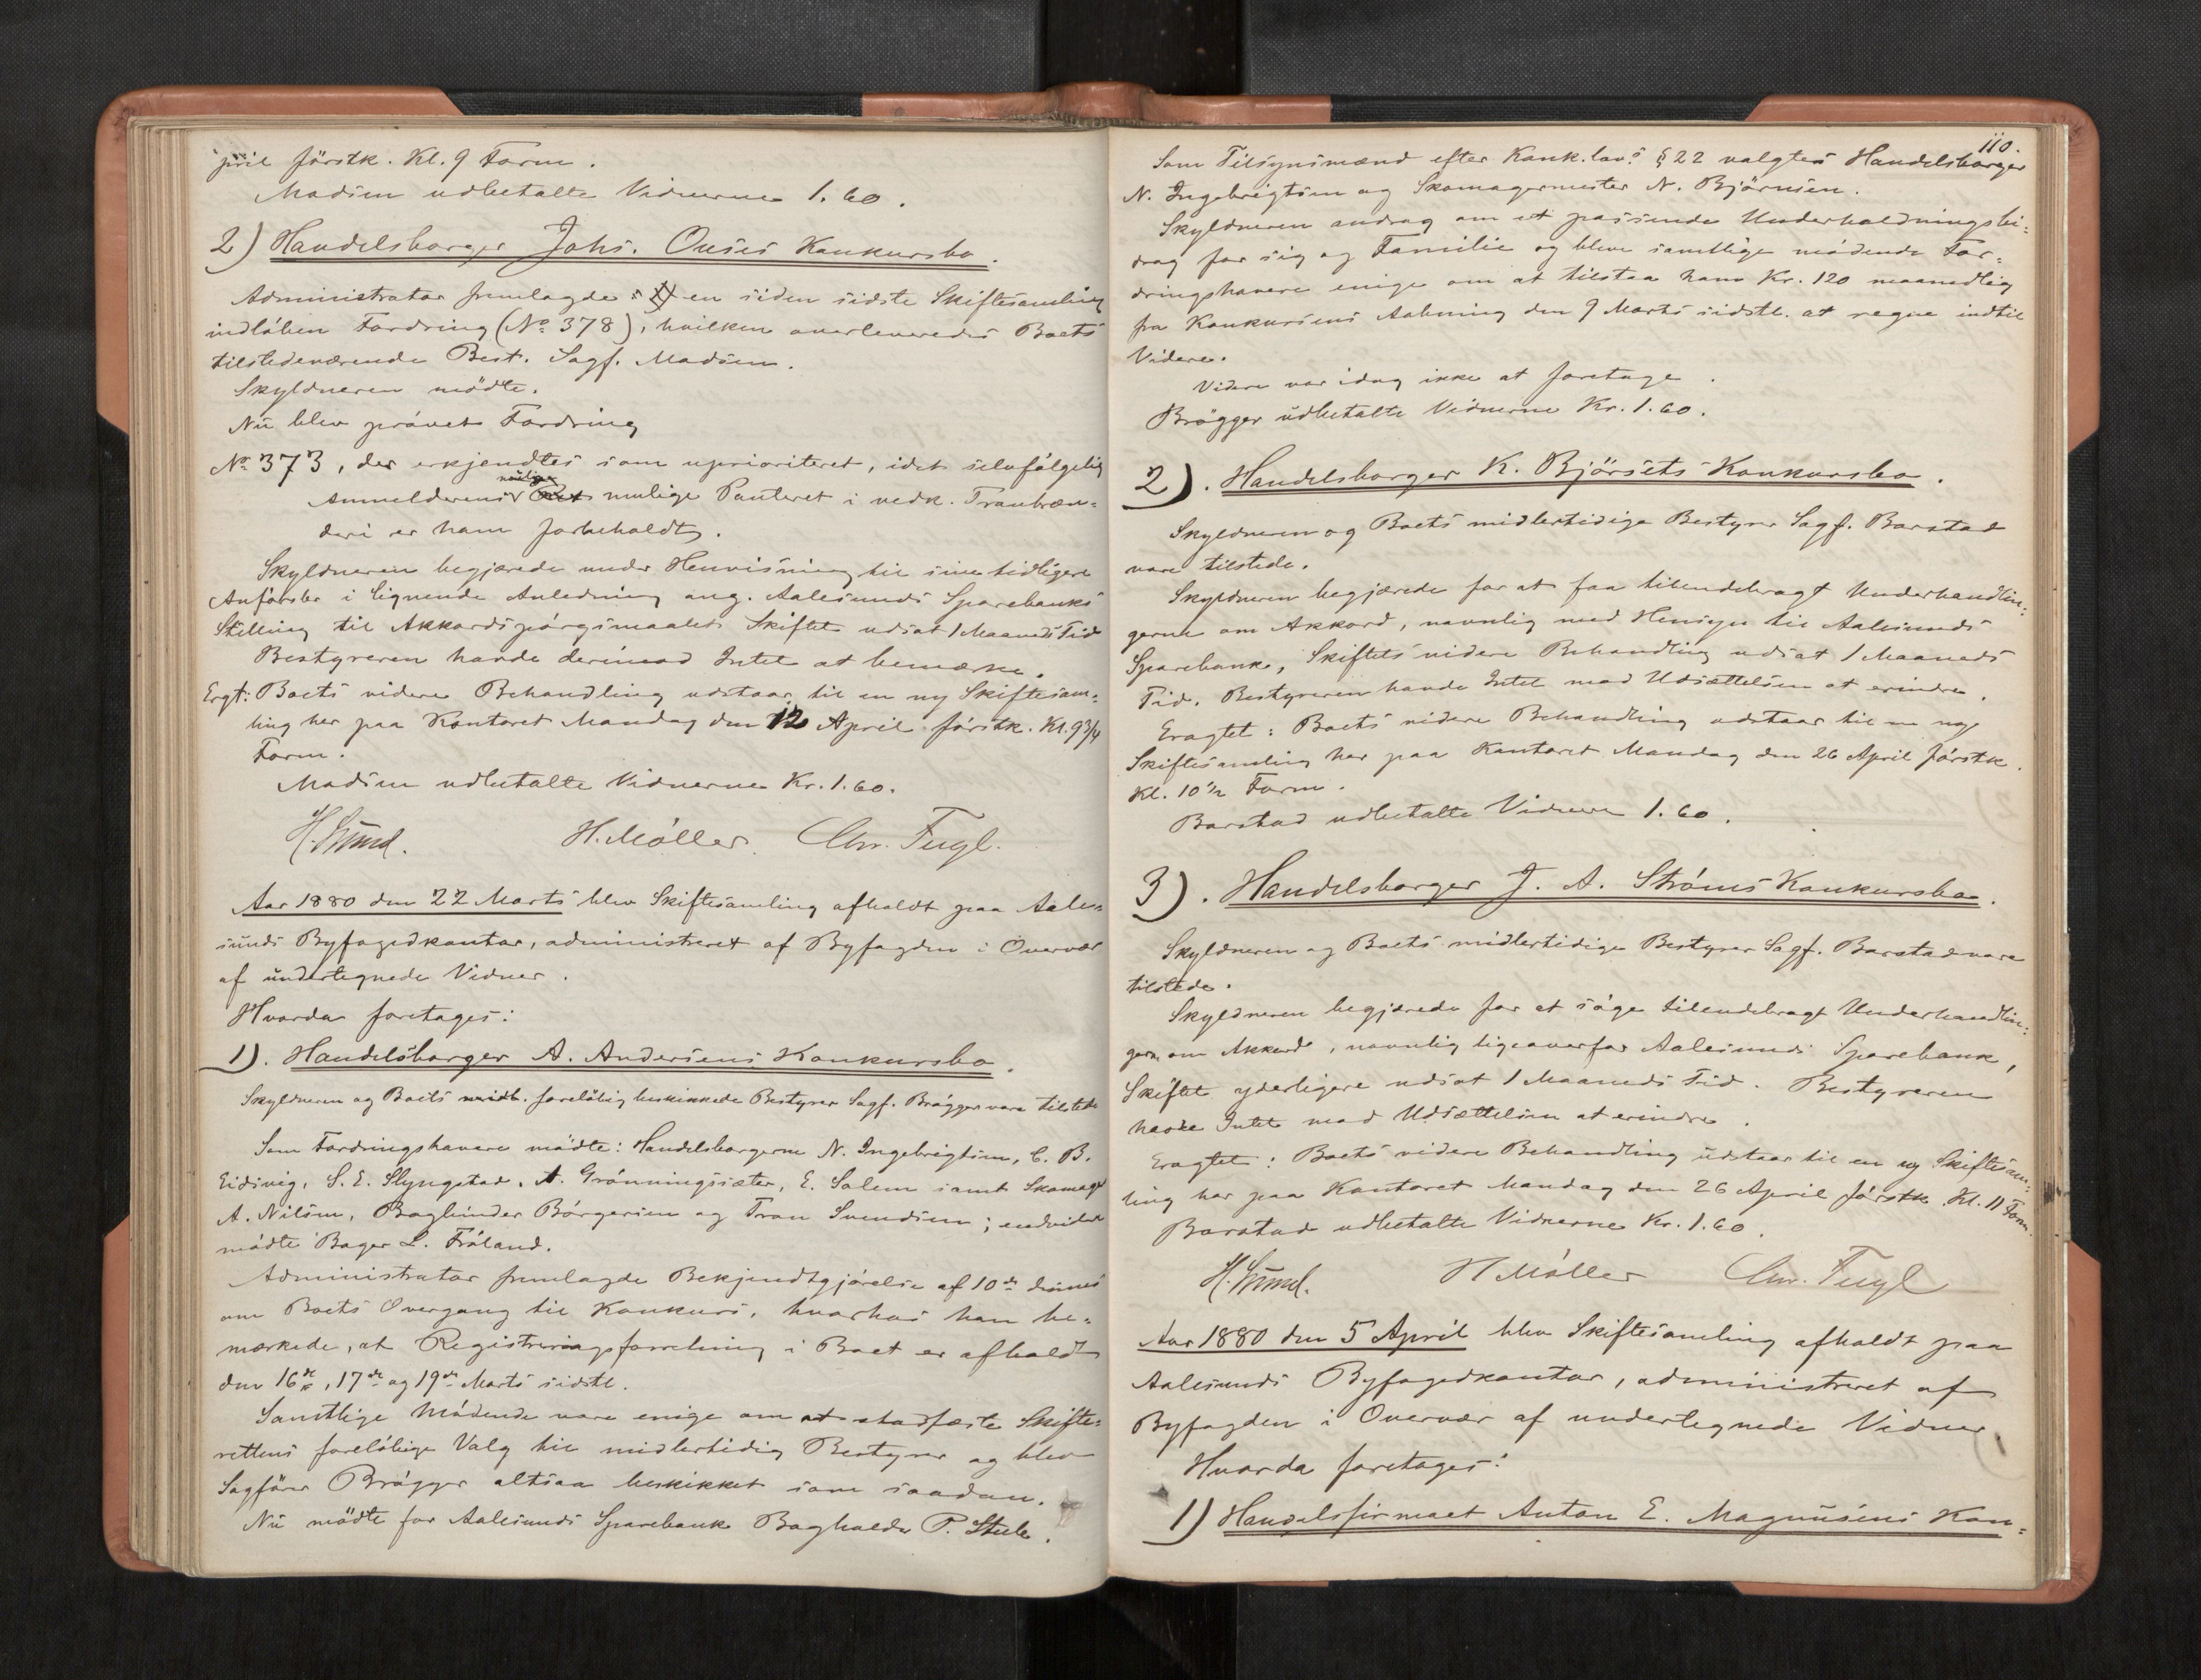 pril förstk. Kl. 9 Form.
Madsen udbetalte Vidnerne 1.60.
2) Handelsborger Johs. Ouses Konkursbo.
Administrator fremlagde en siden sidste Skiftesamling
indløben Fordring (No 378), hvilken overleveredes Boets
tilstedeværende Best. Sagf. Madsen.
Skyldneren mödte.
Nu blev prøvet Fordring
No 373, der erkjendtes som uprioriteret, idet selvfølgelig
Anmelderens mulige Panteret i vedk. Tranbræn=
deri er ham forbeholdt.
Skyldneren begjærede under Henvisning til sine tidligere
Anførsler i lignende Anledning ang. Aalesunds Sparebanks
Stilling til Akkordspørgsmaalet Skiftet udsat 1 Maaneds Tid
Bestyreren havde derimod Intet at bemærke.
Ergt: Boets videre Behandling udstaar til en ny Skiftesam=
ling her paa Kontoret Mandag den 12 April førstk. Kl. 9 3/4
Form.
Madsen udbetalte Vidnerne Kr. 1.60.
H. Møller. Chr. Fugl.
Aar 1880 den 22 Marts blev Skiftesamling afholdt paa Aale=
sunds Byfogedkontor, administreret af Byfogden i Overvær
af undertegnede Vidner.
Hvorda foretages:
1). Handelsborger A. Andersens Konkursbo.
Skyldneren og Boets midl. foreløbig beskikkede Bestyrer Sagf. Brøgger vare tilstede
Som Fordringshavere mødte: Handelsborgerne N. Ingebrigtsen, C. B.
Eidsvig, S. E. Slyngstad, A. Grønningsæter, E. Solem samt Skomager
A. Nilsen, Bogbinder Börgersen og Tron Svendsen; endvidere
mødte Bager L. Frøland.
Administrator fremlagde Bekjendtgjørelse af 10de dennes
om Boets Overgang til Konkurs, hvorhos han be=
mærkede, at Registreringsforretning i Boet er afholdt
den 16de, 17de og 19de Marts sidstl.
Samtlige Mødende vare enige om at stadfæste Skifte=
rettens foreløbige Valg til midlertidig Bestyrer og blev
Sagfører Brøgger altsaa beskikket som saadan.
Nu mødte for Aalesunds Sparebank Bogholder P. Stub.
110.
Som Tilsynsmænd efter Konk.lovs § 22 valgtes Handelsborger
N. Ingebrigtsen og Skomagermester N. Bjørnsen.
Skyldneren androg om et passende Underholdningsbi=
drag for sig og Familie og bleve samtlige mødende For=
dringshavere enige om at tilstaa ham Kr. 120 maanedlig
fra Konkursens Aabning den 9 Marts sidstl. at regne indtil
Videre.
Videre var idag ikke at foretage.
Brøgger udbetalte Vidnerne Kr. 1.60.
2). Handelsborger K. Bjørsets Konkursbo.
Skyldneren og Boets midlertidige Bestyrer Sagf. Barstad
vare tilstede.
Skyldneren begjærede for at faa tilendebragt Underhandlin=
gerne om Akkord, navnlig med Hensyn til Aalesunds
Sparebank, Skiftets videre Behandling udsat 1 Maaneds
Tid. Bestyreren havde Intet mod Udsættelsen at erindre.
Eragtet: Boets videre Behandling udstaar til en ny
Skiftesamling her paa Kontoret Mandag den 26 April førstk.
Kl. 10 1/2 Form.
Barstad udbetalte Vidnerne 1.60.
3). Handelsborger J. A. Strøms Konkursbo.
Skyldneren og Boets midlertidige Bestyrer Sagf. Barstad vare
tilstede.
Skyldneren begjærede for at søge tilendebragt Underhandlin=
gerne om Akkord, navnlig ligeoverfor Aalesunds Sparebank,
Skiftet yderligere udsat 1 Maaneds Tid. Bestyreren
havde Intet mod Udsættelsen at erindre.
Eragtet: Boets videre Behandling udstaar til en ny Skiftesam=
ling her paa Kontoret Mandag den 26 April førstk. Kl. 11 Form.
Barstad udbetalte Vidnerne Kr. 1.60.
H Møller Chr. Fugl
Aar 1880 den 5 April blev Skiftesamling afholdt paa
Aalesunds Byfogedkontor, administreret af
Byfogden i Overvær af undertegnede Vidner.
Hvorda foretages:
1) Handelsfirmaet Anton E. Magnusens Kon=